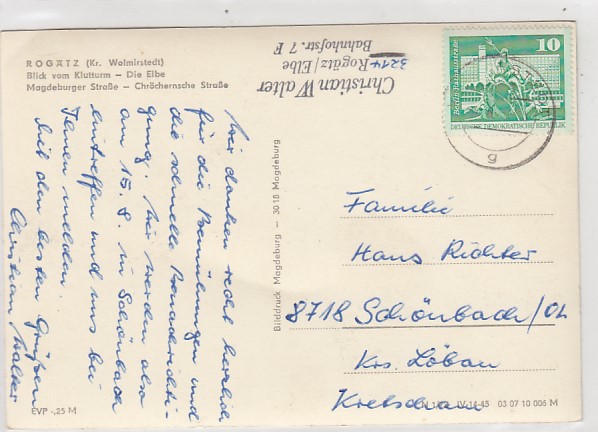 ROGÄTZ (Kr. Wolmirstedt)
Blick vom Klutturm – Die Elbe
Magdeburger Straße – Chröchernsche Straße
Christian Walter
3214 Rogätz/Elbe
Bahnhofstr. 7 F
10
Berlin, Rathausstraße
DEUTSCHE DEMOKRATISCHE REPUBLIK
g
Wir danken recht herzlich
für die Bemühungen und
die schnelle Benachrichti-
gung. Wir werden also
am 15. 8. in Schönbach
eintreffen und uns bei
Ihnen melden.
Mit den besten Grüßen
Christian Walter
Bilddruck Magdeburg — 3018 Magdeburg
Familie
Hans Richter
8718 Schönbach/OL
Krs. Löbau
Kretscham
EVP -,25 M
IV-14-45 03 07 10 006 M